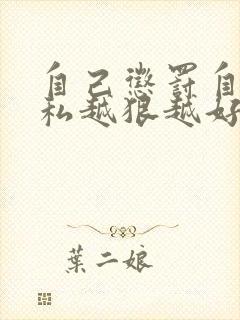 自己懲罰自
私越狠越好
葉二娘